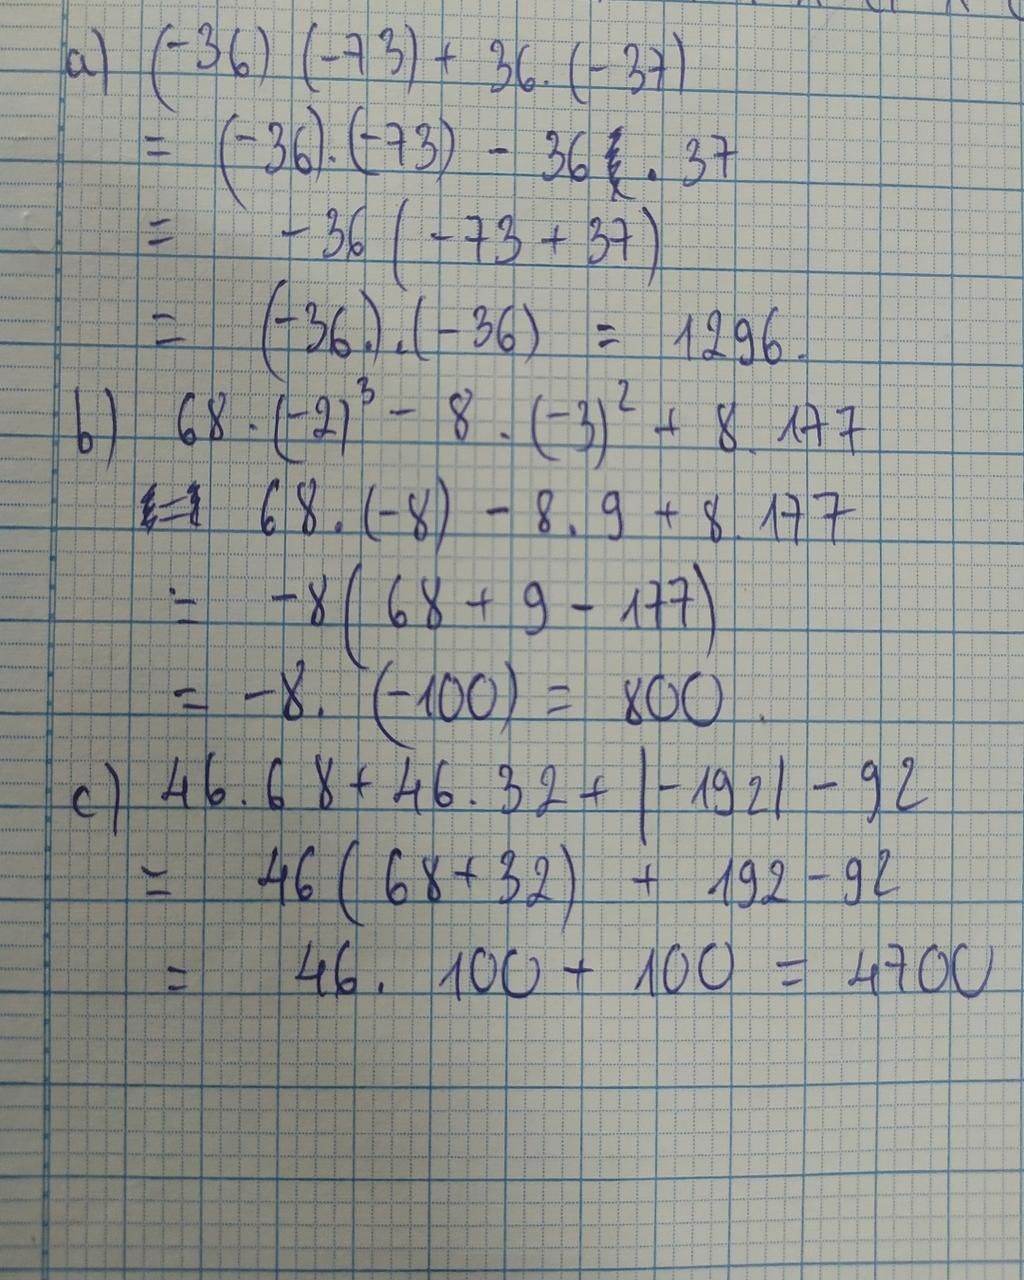 a) (-36) (-73) + 36. (-37)
= (-36).(-73) - 36 . 37
= -36 ( -73 + 37)
= (-36.).(-36) = 1296.
b) 68.(-2)³ - 8.(-3)² + 8.177
= 68.(-8) - 8.9 + 8.177
= -8( 68 + 9 - 177)
= -8. (-100) = 800.
c) 46.68 + 46.32 + |-192| - 92
= 46( 68 + 32) + 192 - 92
= 46. 100 + 100 = 4700